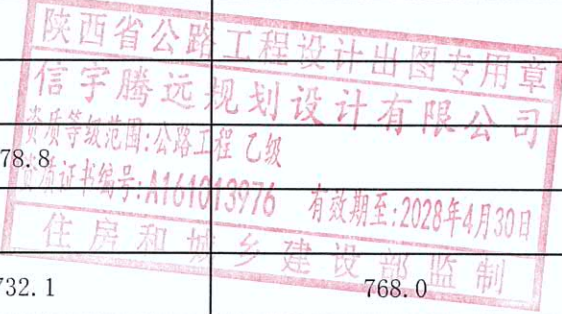 陕西省公路工程设计出图专用章
信宇腾远规划设计有限公司
资质等级范围:公路工程 乙级
78.8
资质证书编号:A161013976 有效期至:2028年4月30日
住房和城乡建设部监制
732.1 768.0